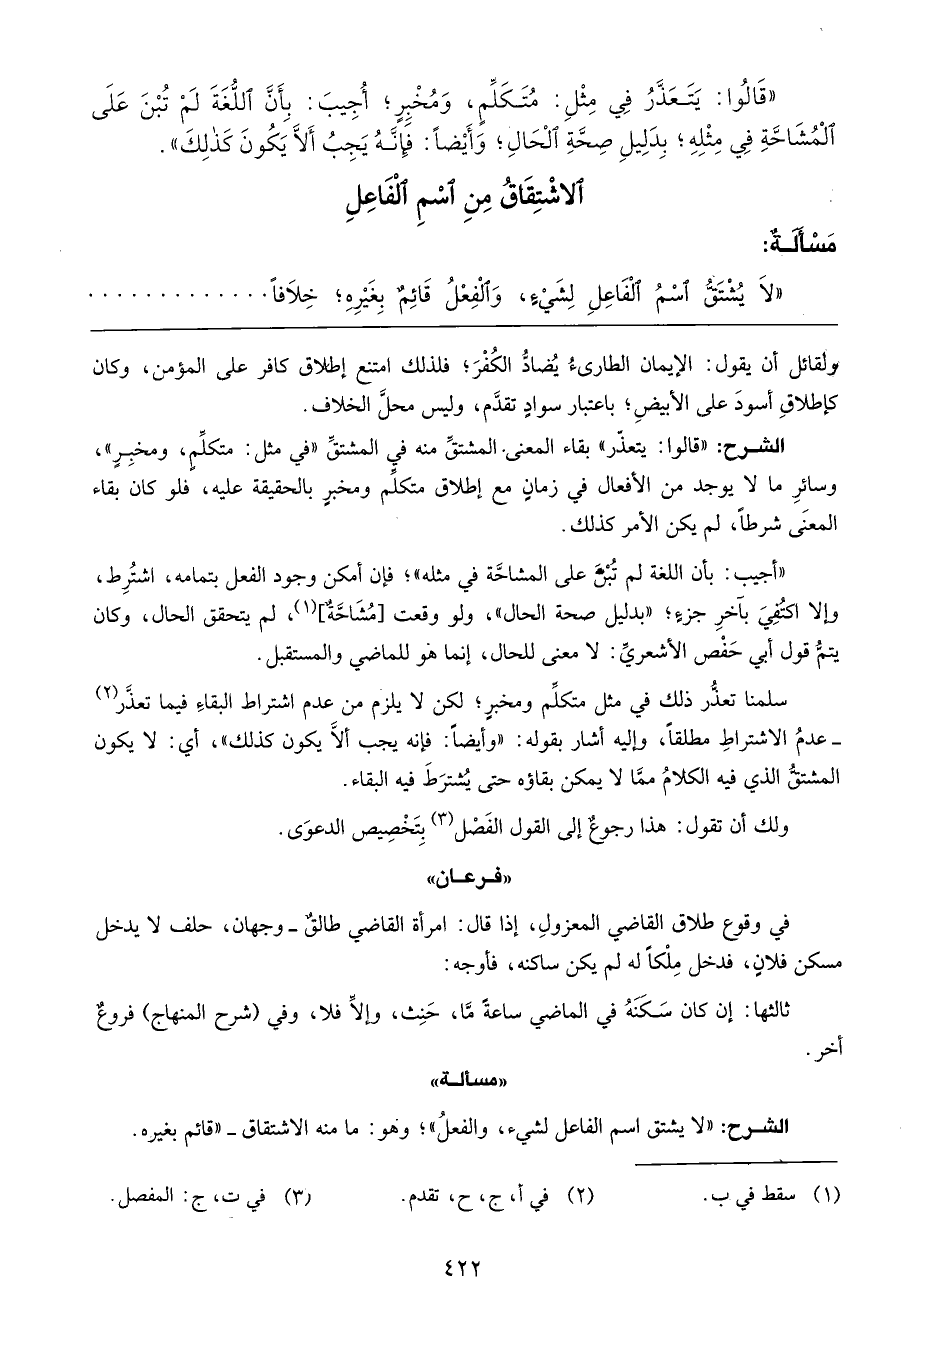 «قَالُوا: يَتَعَذَّرُ فِي مِثْلِ: مُتَكَلِّمٍ، وَمُخْبِرٍ؛ أُجِيبَ: بِأَنَّ ٱللُّغَةَ لَمْ تُبْنَ عَلَى
ٱلْمُشَاحَّةِ فِي مِثْلِهِ؛ بِدَلِيلِ صِحَّةِ ٱلْحَالِ؛ وَأَيْضاً: فَإِنَّهُ يَجِبُ أَلاَّ يَكُونَ كَذٰلِكَ».
ٱلاشْتِقَاقُ مِنِ ٱسْمِ ٱلْفَاعِلِ
مَسْأَلَةٌ:
«لاَ يُشْتَقُّ ٱسْمُ ٱلْفَاعِلِ لِشَيْءٍ، وَٱلْفِعْلُ قَائِمٌ بِغَيْرِهِ؛ خِلَافاً.............
ولقائل أن يقول: الإيمان الطارىءُ يُضادُّ الكُفْرَ؛ فلذلك امتنع إطلاق كافر على المؤمن، وكان
كإطلاقِ أسودَ على الأبيضِ؛ باعتبار سوادٍ تقدَّم، وليس محلَّ الخلاف.
الشرح: «قالوا: يتعذّر» بقاء المعنى المشتقِّ منه في المشتقِّ «في مثل: متكلِّمٍ، ومخبرٍ»،
وسائرِ ما لا يوجد من الأفعال في زمانٍ مع إطلاق متكلِّم ومخبرٍ بالحقيقة عليه، فلو كان بقاء
المعنَى شرطاً، لم يكن الأمر كذلك.
«أجيب: بأن اللغة لم تُبْنَ على المشاحَّة في مثله»؛ فإن أمكن وجود الفعل بتمامه، اشتُرِط،
وإلا اكتُفِيَ بآخرِ جزءٍ؛ «بدليل صحة الحال»، ولو وقعت [مُشَاحَّةٌ](١)، لم يتحقق الحال، وكان
يتمُّ قول أبي حَفْص الأشعريِّ: لا معنى للحال، إنما هو للماضي والمستقبل.
سلمنا تعذُّر ذلك في مثل متكلِّم ومخبرٍ؛ لكن لا يلزم من عدم اشتراط البقاءِ فيما تعذَّر(٢)
ـ عدمُ الاشتراطِ مطلقاً، وإليه أشار بقوله: «وأيضاً: فإنه يجب ألاَّ يكون كذلك»، أي: لا يكون
المشتقُّ الذي فيه الكلامُ ممَّا لا يمكن بقاؤه حتى يُشترَطَ فيه البقاء.
ولك أن تقول: هذا رجوعٌ إلى القول الفَصْل(٣) بِتَخْصِيص الدعوَى.
«فرعان»
في وقوع طلاق القاضي المعزولِ، إذا قال: امرأة القاضي طالقٌ ـ وجهان، حلف لا يدخل
مسكن فلانٍ، فدخل مِلْكاً له لم يكن ساكنه، فأوجه:
ثالثها: إن كان سَكَنَهُ في الماضي ساعةً مَّا، حَنِث، وإلاَّ فلا، وفي (شرح المنهاج) فروعٌ
أخر.
«مسألة»
الشرح: «لا يشتق اسم الفاعل لشيء، والفعلُ»؛ وهو: ما منه الاشتقاق ـ «قائم بغيره.
(١) سقط في ب.
(٢) في أ، ج، ح، تقدم.
(٣) في ت، ج: المفصل.
٤٢٢